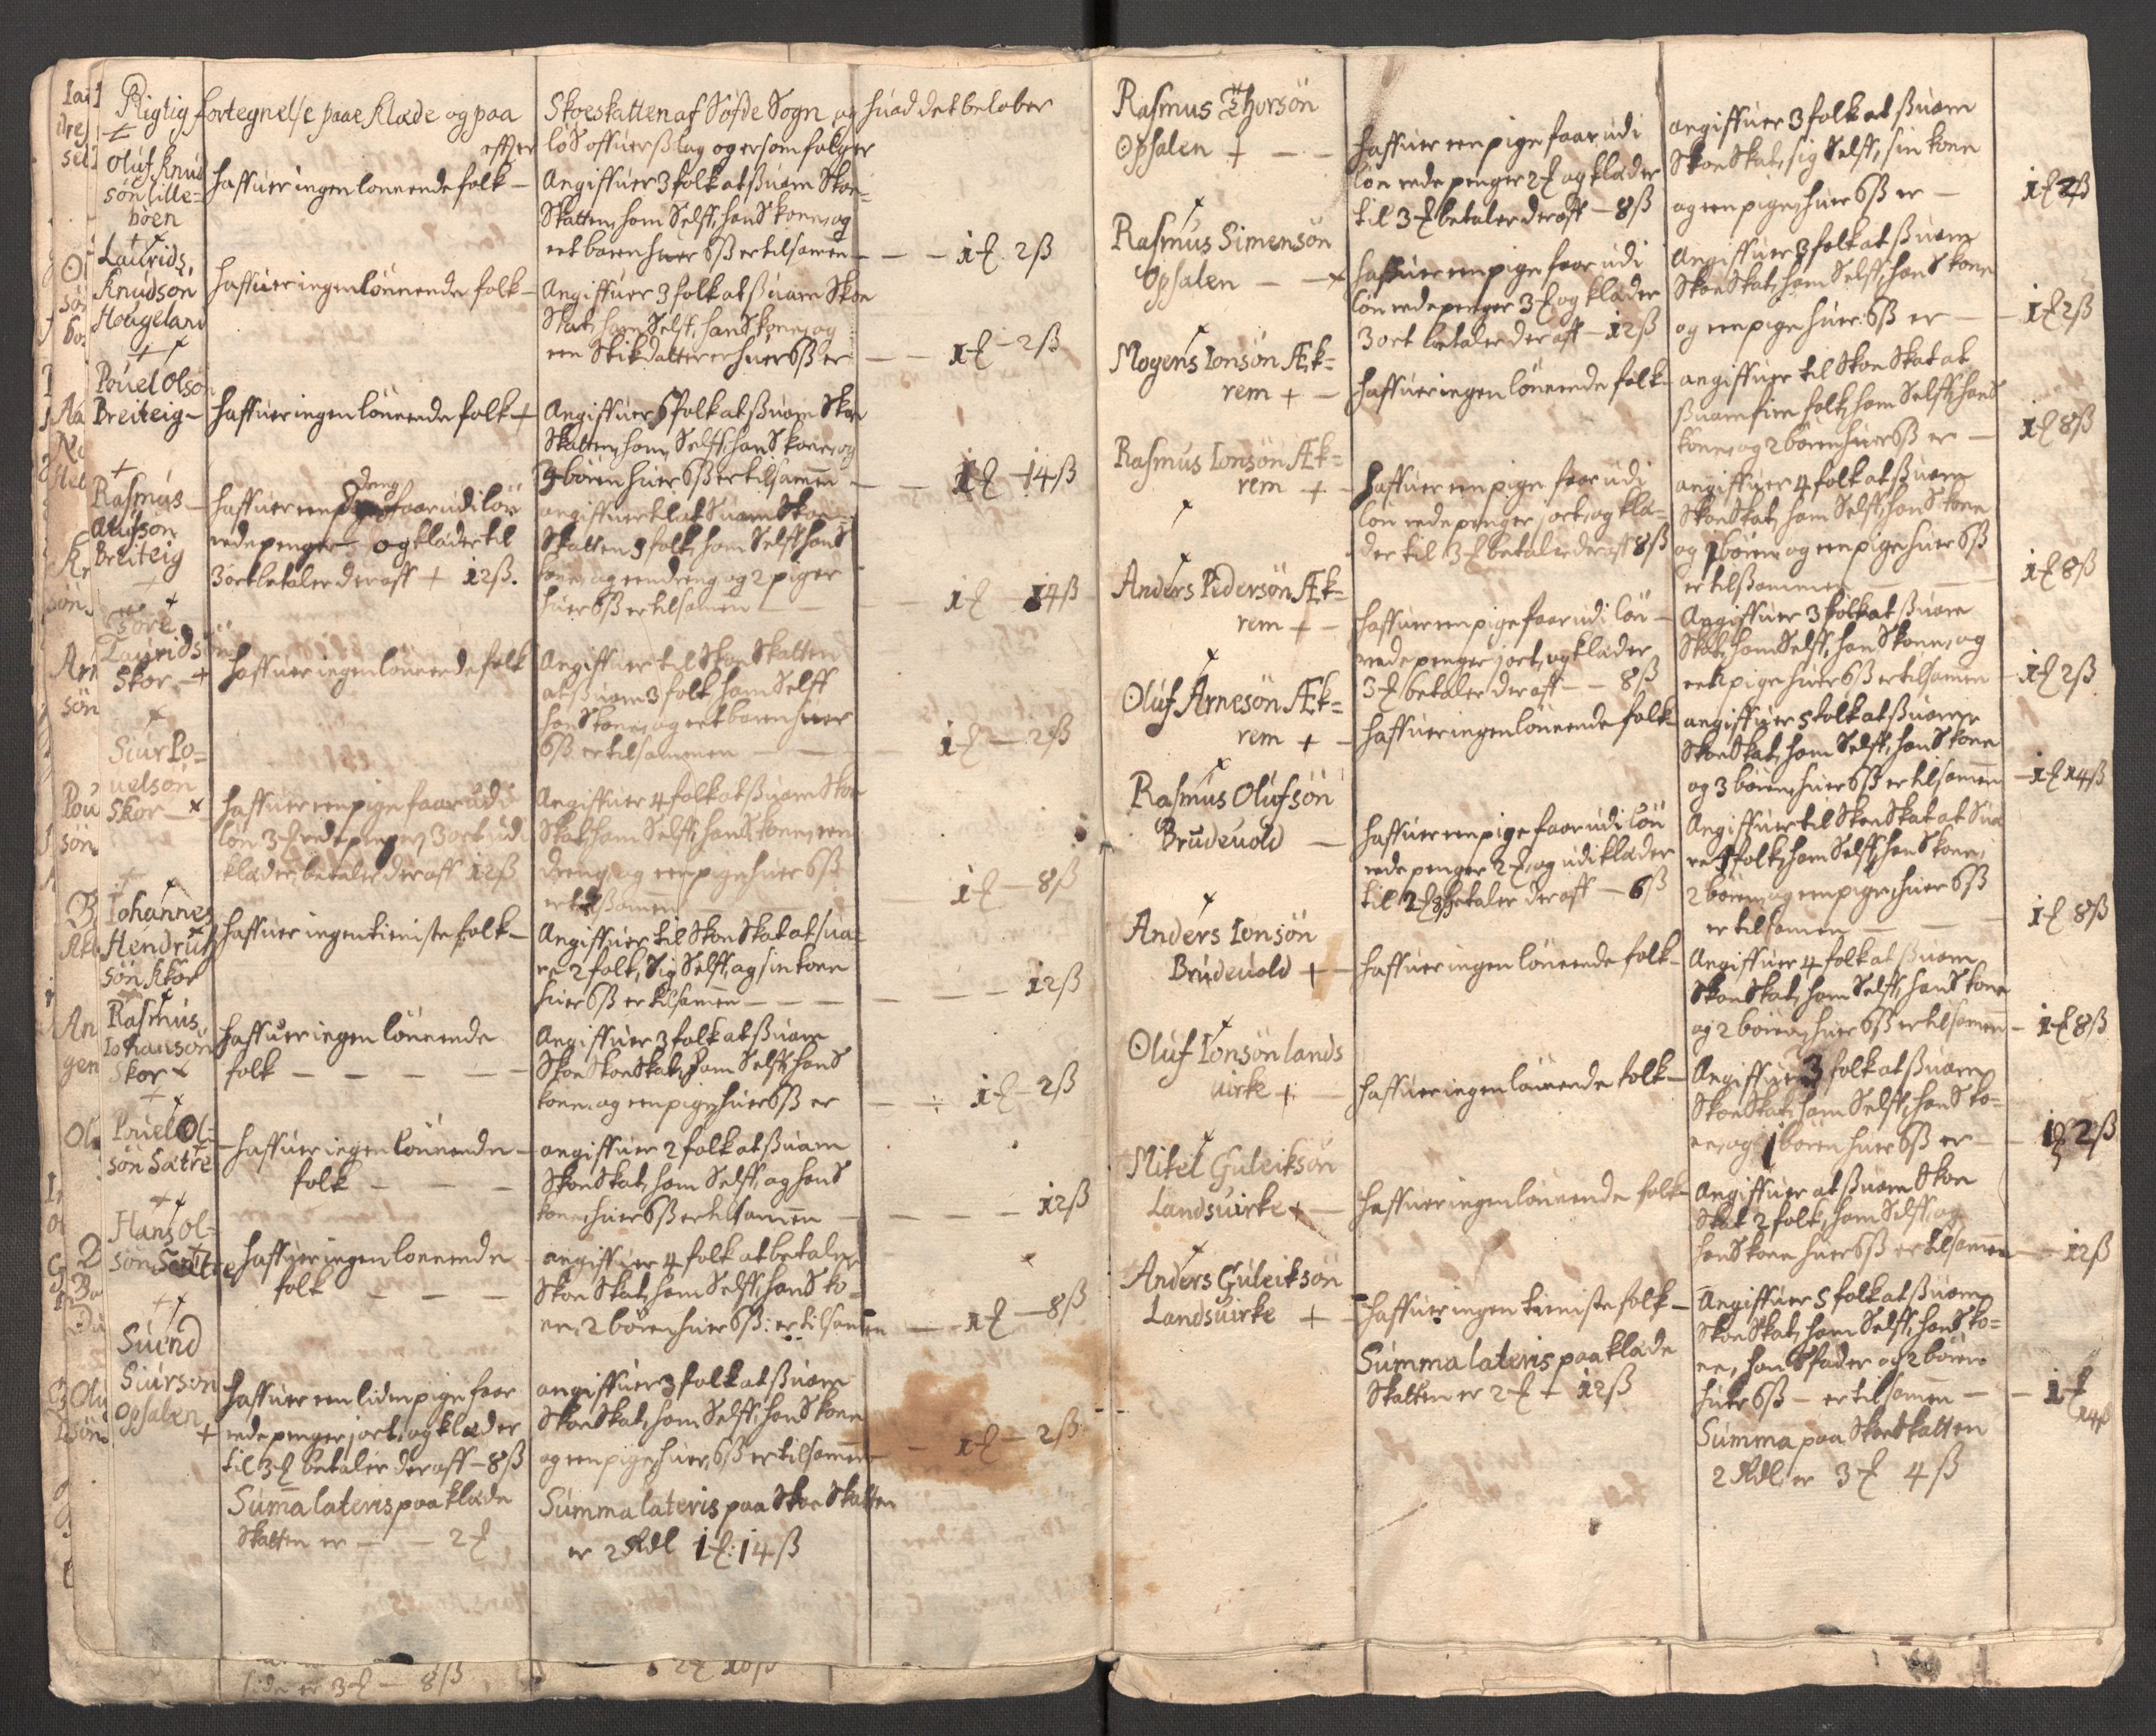 Rigtig fortegnelse paae Klæde og paa Skoeskatten af Söfde Sogn og huad det belober
effter loS offuerßlag og er som fölger
Oluf Knud
sön lille-
böen
haffuer ingen lonnende folk —
Angiffuer 3 folk at ßuare Skoe-
Skatten, ham Selff, hanS kone, og
eet baren huer 6ß er tilsamen — — — 1 ₰ 2ß
Laurids
Knudsön
Hougeland
haffuer ingen lönnende folk —
Angiffuer 3 folk at ßuare Skoe
Skat, ham Selff, hanS kone, og
een Stikdatter er huer 6ß er — — 1 ₰ — 2ß
Pouel Olsön
Breiteig —
haffuer ingen lönnende folk +
Angiffuer 5 folk at ßuare Skoe
Skatten, ham Selff, hanS kone, og
3 bören huer 6ß er tilsamen — — 1 ₰ 14ß
Rasmus —
Olufson
Breiteig
haffuer een dreng faar udi lön
rede penger — og klæder til
3 ort betaler der aff + 12ß.
angiffuer til at Suare Skoe-
Skatten 5 folk, ham Selff hanS
kone, og een dreng og 2 piger
huer 6ß er tilsamen — — 1 ₰ — 14ß
Tore
Lauridsön
Skor — +
haffuer ingen lönnende folk
Angiffuer til Skoe Skatten
at ßuare 3 folk ham Selff
hanS kone, og eet baren huer
6ß er tilsammen — — — 1 ₰ — 2ß
Siur Po-
uelsön
Skor — x
haffuer een pige faar udi
lön 3 ₰ rede penger 3 ort udi
klæder, betaler der aff 12ß
Angiffuer 4 folk at ßuare Skoe
Skat, ham Selff, hanS kone, een
dreng og een pige huer 6ß
er tilßamen — — 1 ₰ — 8ß
Iohannes
Hendrik
sön Skor
haffuer ingen tieniste folk —
Angiffuer til Skoe Skat at sua-
re 2 folk, Sig Selff, og sin kone
huer 6ß er tilsamen — — — — — 12ß
Rasmus
Iohansön
Skor x
haffuer ingen lönnende
folk — — — —
Angiffuer 3 folk at ßuare
Skoe Skoe Skat, ham Selff, hanS
kone, og een pige, huer 6ß er — ÷ 1 ₰ — 2ß
Pouel Ol-
sön Sætre
— haffuer ingen lönnende —
folk — — —
angiffuer 2 folk at ßuare
Skoe Skat, ham Selff, og hanS
kone, huer 6ß er tilsamen — — — — 12ß
Hans Ol-
sön Sætre
haffuer ingen lonnende
folk — — —
angiffuer 4 folk at betale
Skoe Skat, ham Selff, hanS ko-
ne, 2 bören huer 6ß: er tilsamen — 1 ₰ — 8ß
Suend
Siurson
Opsalen +
haffuer een liden pige faar
rede penger 1 ort, og klæder
til 3 ₰ betaler der aff — 8ß
angiffuer 3 folk at ßuare
Skoe Skat, ham Selff, hanS kone
og een pige, huer 6ß er tilsamen — 1 ₰ — 2ß
Suma lateris paa klæde
Skatten er — — 2 ₰
Summa lateris paa Skoe Skatten
er 2 Rdl 1 ₰: 14ß
Rasmus Thorsön
Opsalen + — —
haffuer een pige faar udi
lön rede penger 2 ₰ og klæder
til 3 ₰ betaler der aff — 8ß
angiffuer 3 folk at ßuare
Skoe Skat, sig Selff, sin kone
og een pige, huer 6ß er — 1 ₰ 2ß
Rasmus Simensön
Opsalen — — x
haffuer een pige faar udi
lön rede penger 3 ₰ og klæder
3 ort betaler der aff — 12ß
Angiffuer 3 folk at ßuare
Skoe Skat, ham Selff, hanS kone
og een pige huer: 6ß er — — 1 ₰ 2ß
Mogens Ionsön Æk-
rem + —
haffuer ingen lönnende folk —
angiffuer til Skoe Skat at
ßuare fire folk, ham Selff, hanS
kone, og 2 bören huer 6ß er — 1 ₰ 8ß
Rasmus Ionsön Æk-
rem +
haffuer een pige faar udi
lön rede penger 1 ort, og klæ-
der til 3 ₰ betaler der aff 8ß
angiffuer 4 folk at ßuare
Skoe Skat, ham Selff, hanS kone
og 1 bören og een pige, huer 6ß
er tilßammen — — 1 ₰ 8ß
Anders Pedersön Æk-
rem + —
haffuer een pige faar udi lön —
rede penger 1 ort, og klæder
3 ₰ betaler der aff — — 8ß
Angiffuer 3 folk at ßuare
Skat, ham Selff, hanS kone, og
een pige huer 6ß er tilsamen — 1 ₰ 2ß
Oluf Arnesön Æk-
rem + —
haffuer ingen lönnende folk —
angiffuer 5 folk at ßuare
Skoe Skat, ham Selff, hanS kone
og 3 bören, huer 6ß er tilsamen — 1 ₰ 14ß
Rasmus Olufsön
Brudeuold —
haffuer een pige faar udi lön
rede penger 2 ₰, og udi klæder
til 2 ₰ 8ß betaler der aff — 6ß
Angiffuer til Skoe Skat at Sua
re 4 folk, ham Selff, hanS kone,
2 bören, og een pige, huer 6ß
er tilsamen — — 1 ₰ 8ß
Anders Ionsön
Brudeuold + —
haffuer ingen lönnende folk —
Angiffuer 4 folk at ßuare
Skoe Skat, ham Selff, hanS kone
og 2 bören, huer 6ß er tilsamen — 1 ₰ 8ß
Oluf Ionsön lands
uirke + —
haffuer ingen lönnende folk —
Angiffuer 3 folk at ßuare
Skoe Skat, ham Selff, hanS ko-
ne, og 1 bören huer 6ß er — — 1 ₰ 2ß
Mikel Guleiksön
Landsuirke x —
haffuer ingen lönnende folk
Angiffuer at ßuare Skoe
Skat 2 folk, ham Selff, og
hanS kone huer 6ß er tilsamen — — 12ß
Anders Guleiksön
Landsuirke +
haffuer ingen tieniste folk —
Angiffuer 5 folk at ßuare
Skoe Skat, ham Selff, hanS ko-
ne, hanS fader og 2 bören
huer 6ß — er tilsamen — — 1 ₰
14ß
Summa lateris paa klæde
Skatten er 2 ₰ + 12ß
Summa paa Skoe Skatten
2 Rdl er 3 ₰ 4ß
side er 3 ₰ — 8ß